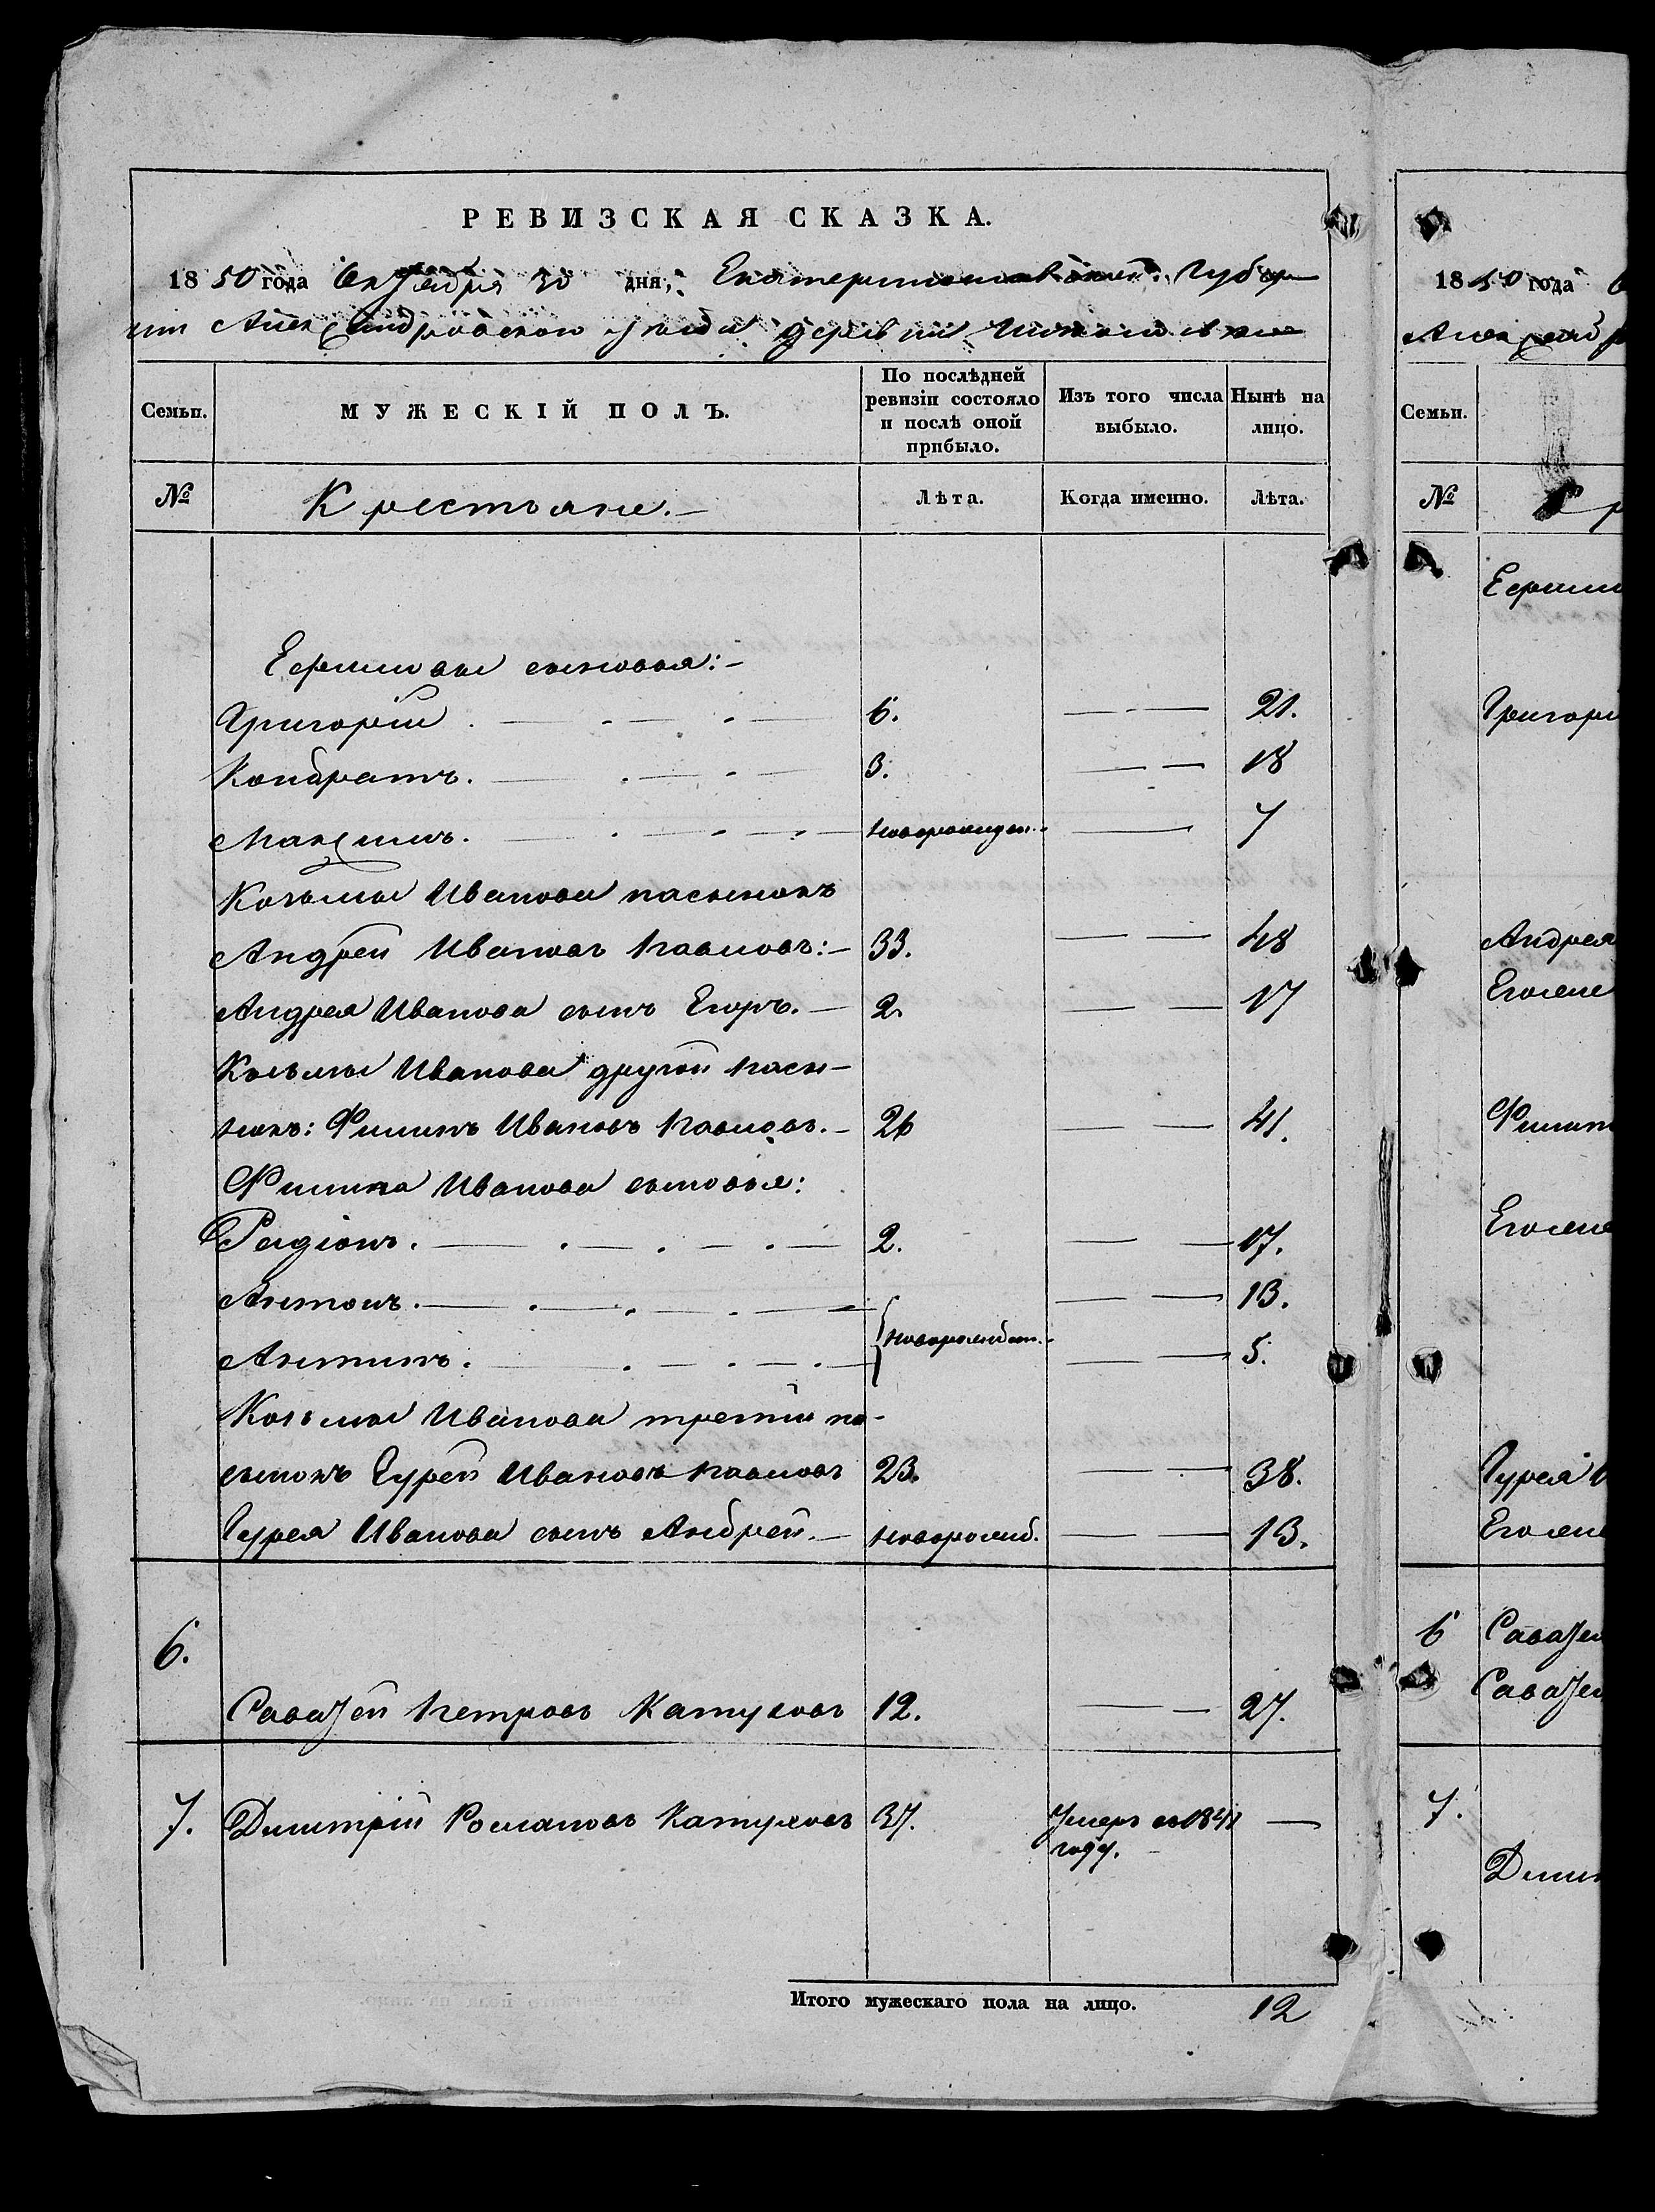 РЕВИЗСКАЯ СКАЗКА.
1850 года Октября 30 дня, Екатеринославской Губер
нии Александровского уезда деревни
Семьи. МУЖЕСКІЙ ПОЛЪ. По послѣдней ревизіи состояло и послѣ оной прибыло. Изъ того числа выбыло. Нынѣ на лицо.
№ Крестьяне.— Лѣта. Когда именно. Лѣта.
Ефимовы сыновья:—
Григорій. 6. 21.
Кондратъ. 3. 18
Максимъ. новорожден. 7
Козьмы Иванова пасынокъ
Андрей Ивановъ Павловъ:— 33. 48
Андрея Иванова сынъ Егоръ.— 2. 17
Козьмы Иванова другой пасы—
нокъ: Филипъ Ивановъ Павловъ.— 26 41.
Филипа Иванова сыновья:
Радіонъ. 2. 17.
Антонъ. 13.
новорожден.
Антипъ. 5.
Козьмы Иванова третій па-
сынокъ Гурей Ивановъ Павловъ 23. 38.
Гурея Иванова сынъ Андрей.— новорожд. 13.
6.
Саватей Петровъ Катуховъ 12. 27.
7. Дмитрій Романовъ Катуховъ 37. Умеръ въ 1841 —
году.
Итого мужескаго пола на лицо. 12
1850 года
Александр
Семьи.
№
Ефимо
Григорі
Андрея
Его жене
Филип
Его жене
Гурея И
Его жен
6 Саватей
Саватей
7.
Дмит